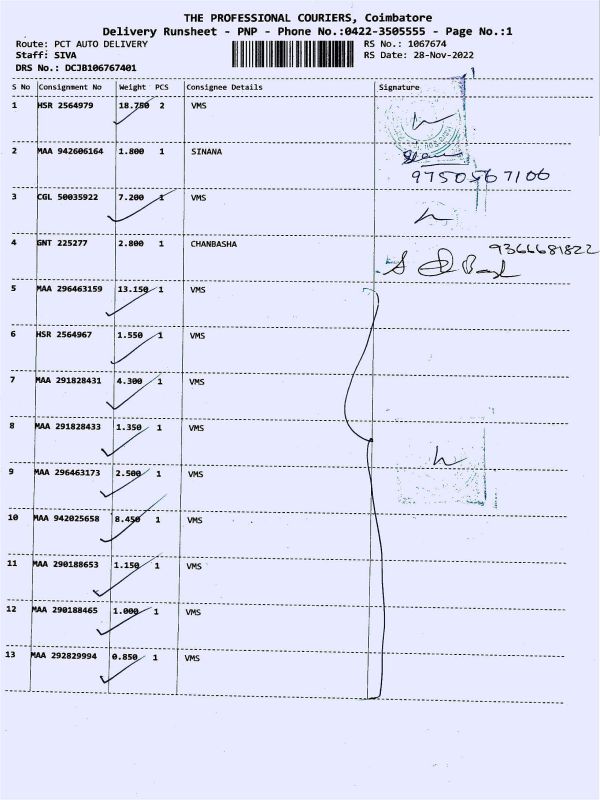 THE PROFESSIONAL COURIERS, Coimbatore
Delivery Runsheet - PNP - Phone No.:0422-3505555 - Page No.:1
Route: PCT AUTO DELIVERY RS No.: 1067674
Staff: SIVA RS Date: 28-Nov-2022
DRS No.: DCJB106767401
S No Consignment No Weight PCS Consignee Details Signature
1 HSR 2564979 18.750 2 VMS
2 MAA 942606164 1.800 1 SINANA
9750567106
3 CGL 50035922 7.200 1 VMS
4 GNT 225277 2.800 1 CHANBASHA 9366681822
5 MAA 296463159 13.150 1 VMS
6 HSR 2564967 1.550 1 VMS
7 MAA 291828431 4.300 1 VMS
8 MAA 291828433 1.350 1 VMS
9 MAA 296463173 2.500 1 VMS
10 MAA 942025658 8.450 1 VMS
11 MAA 290188653 1.150 1 VMS
12 MAA 290188465 1.000 1 VMS
13 MAA 292829994 0.850 1 VMS